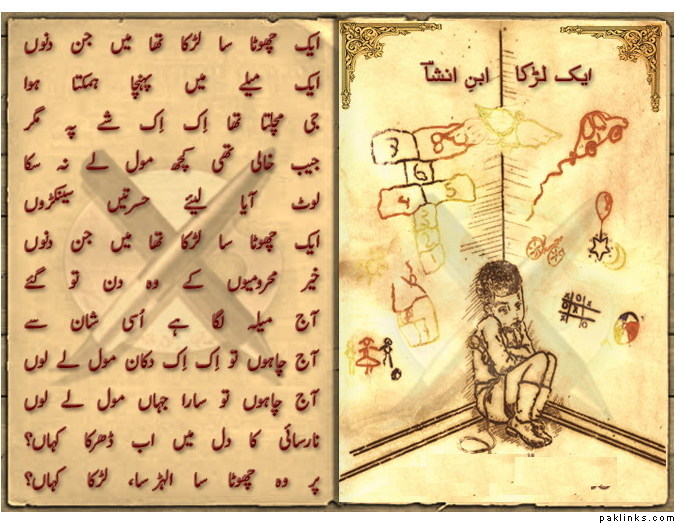 ایک لڑکا ابنِ انشاؔ
ایک چھوٹا سا لڑکا تھا میں جن دنوں
ایک میلے میں پہنچا ہمکتا ہوا
جی مچلتا تھا اِک اِک شے پہ مگر
جیب خالی تھی کچھ مول لے نہ سکا
لوٹ آیا لیئے حسرتیں سینکڑوں
ایک چھوٹا سا لڑکا تھا میں جن دنوں
خیر محرومیوں کے وہ دن تو گئے
آج میلہ لگا ہے اُسی شان سے
آج چاہوں تو اِک اِک دکان مول لے لوں
آج چاہوں تو سارا جہاں مول لے لوں
نارسائی کا دل میں اب دھڑکا کہاں؟
پر وہ چھوٹا سا الہڑ سا، لڑکا کہاں؟
7 8
6
4 5
paklinks.com